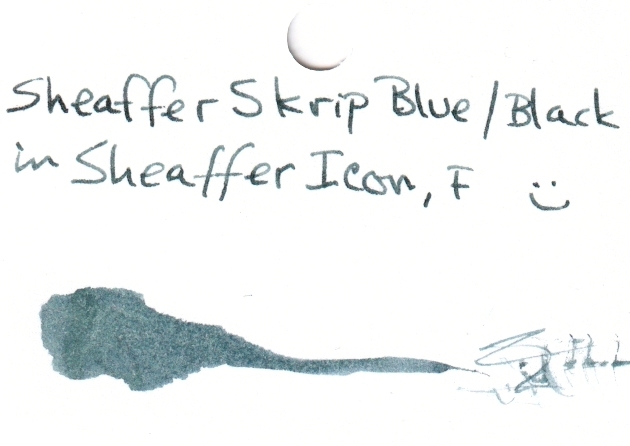 Sheaffer Skrip Blue/Black
in Sheaffer Icon, F